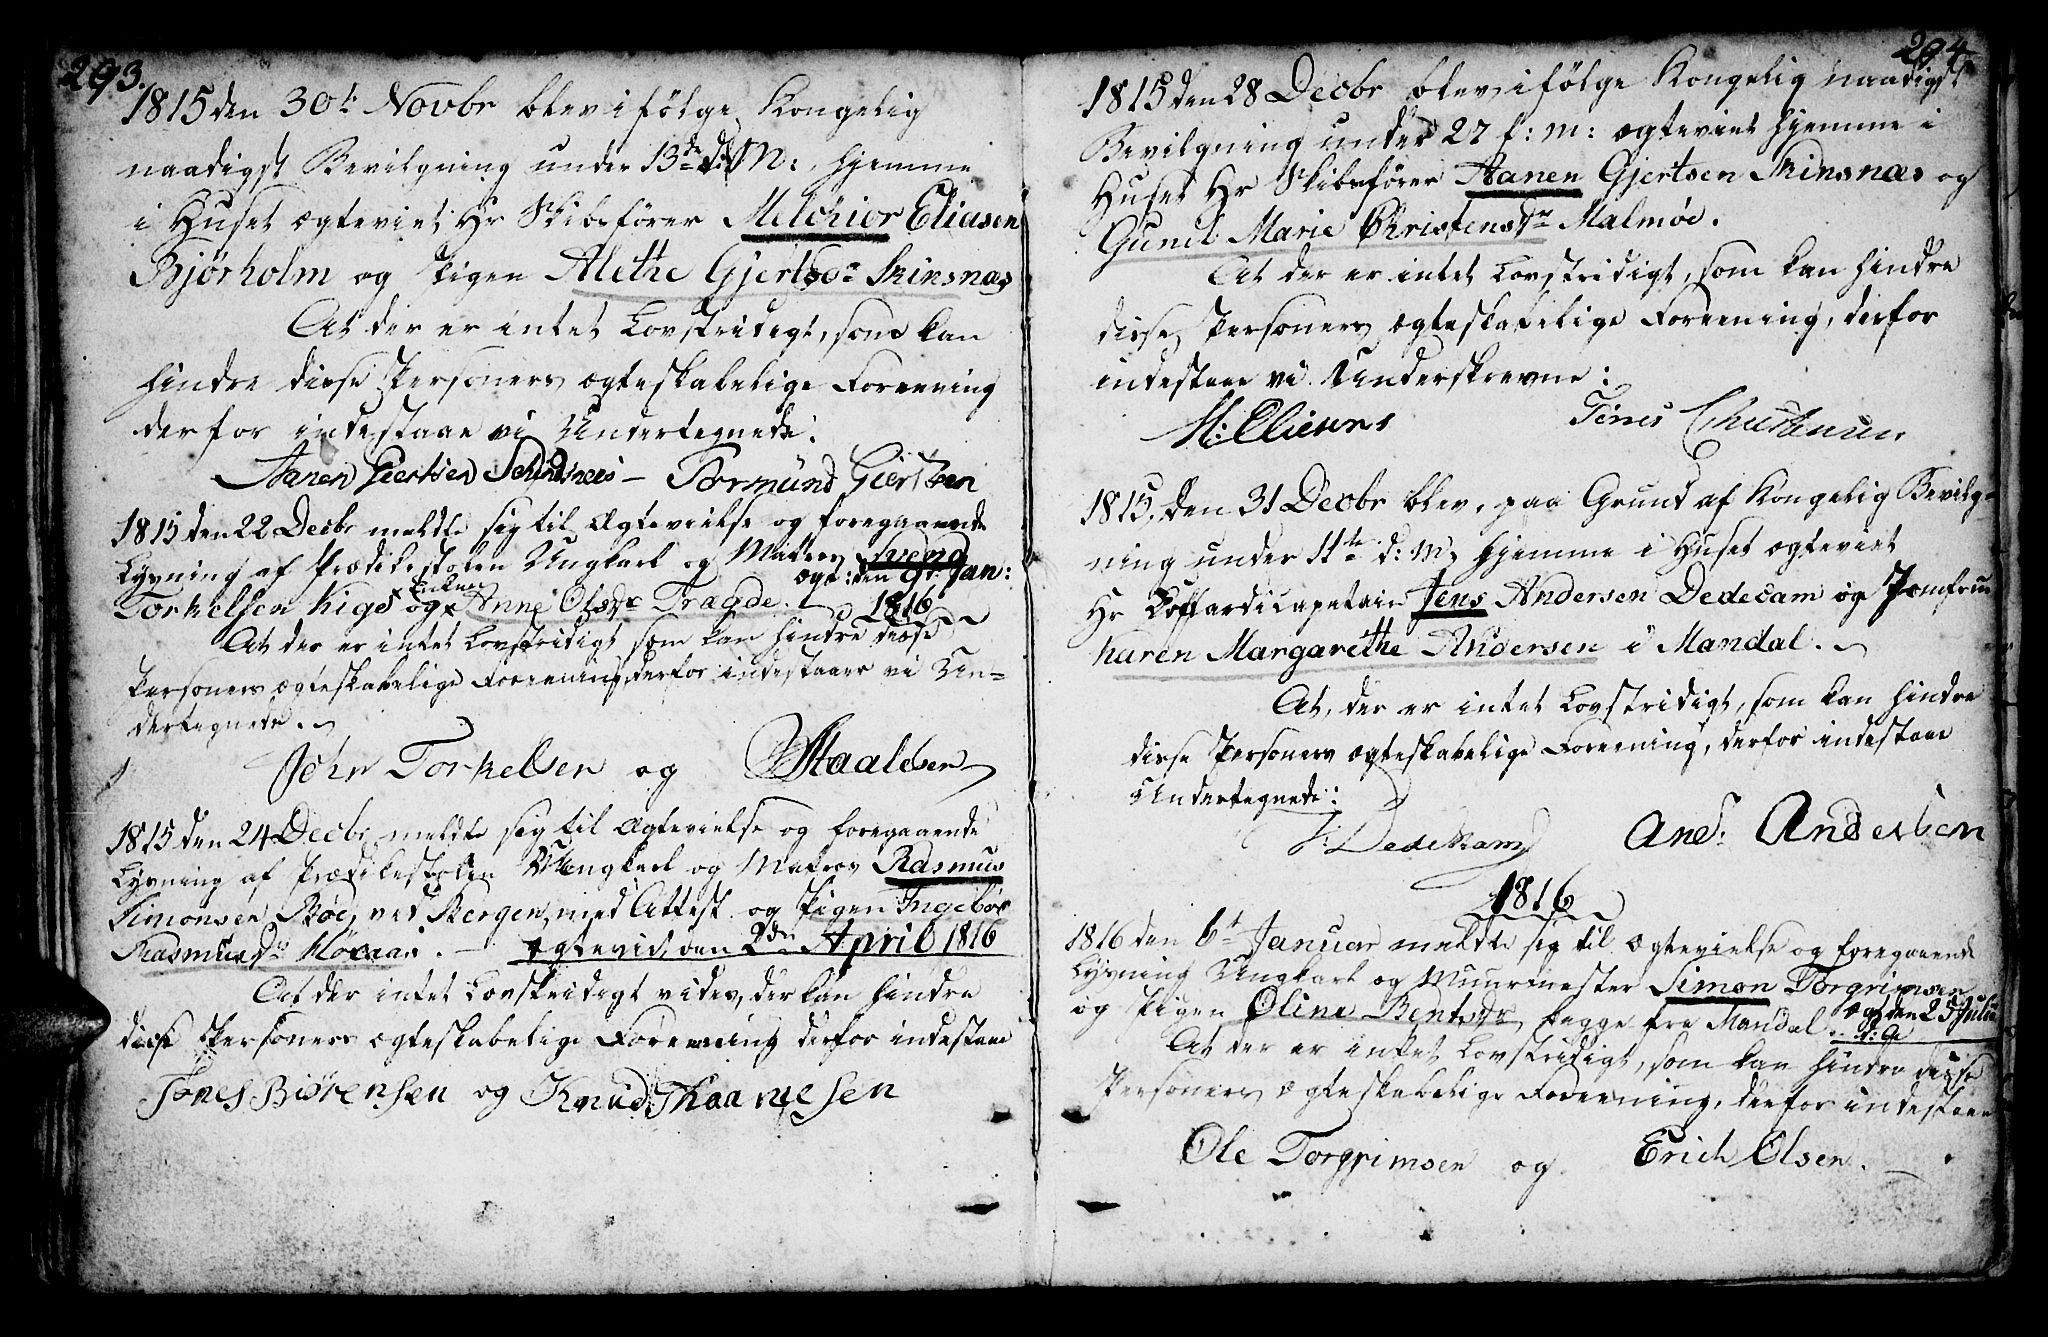 293.
1815 den 30t. Novbr blev ifölge Kongelig
naadigst Bevilgning under 13de d: M:, hjemme
i Huset ægteviet Hr Skibsförer Melchior Eliasen
Bjørholm og Pigen Alethe Gjertsdr Skinsnæs
At der er intet Lovstridigt, som kan
hindre disse Personers ægteskabelige Foreening
derfor indestaae vi Undertegnede.
Aanen Giertsen Schindsnes – Tormund Giertsen
1815 den 22 Decbr meldte sig til Ægtevielse og foregaaende
Lysning af Prædikestolen Ungkarl og Matros Svend
Torkelsen Kige og Enken Anne Olsdr Trægde. ægt: den 9t. Jan:
1816
At der er intet Lovstridigt som kan hindre disse
Personers ægteskabelige Foreening, derfor indestaaer vi Un=
dertegnede.
John Torkelsen og Staalesen
1815 den 24 Decbr meldte sig til Ægtevielse og foregaaende
Lysning af Prædikestolen Ungkarl og Matros Rasmus
Simonsen Böe, ved Bergen, med Attest og Pigen Ingebor
Rasmusdr . – Ægteviet, den 2den April 1816
At der intet Lovstridigt vides, der kan hindre
disse Personers ægteskabelige Foreening derfor indestaae
Tønes Biørensen og Knud Thaamesen
294
1815 den 28 Decbr blev ifölge Kongelig naadigst
Bevilgning under 27 f: M: ægteviet hjemme i
Huset Hr Skibsförer Aanen Gjertsen Skinsnæs og
Gunel Marie Christensdr Malmöe.
At der er intet Lovstridigt, som kan hindre
disse Personers ægteskabelige Foreening, derfor
indestaae vi Underskrevne:
M: Eliesens Tönes Christensen
1815, den 31 Decbr blev, paa Grund af Kongelig Bevilg=
ning under 11te d: M: hjemme i Huset ægteviet
Hr Koffardicapetain Jens Andersen Dedecam og Jomfrue
Karen Margarethe Andersen i Mandal.
At, der er intet Lovstridigt, som kan hindre
disse Personers ægteskabelige Foreening, derfor indestaae
Undertegnede:
Dedekam Ands: Andersen
1816
1816 den 6t Januar meldte sig til Ægtevielse og foregaaende
Lysning Ungkarl og Muurmester Simon Torgrimsen
og Pigen Oline Bentsdr begge fra Mandal. Ægt den 25 Julii
d: A
At der er intet Lovstridigt, som kan hindre disse
Personers ægteskabelige Foreening, derfor indestaae
Ole Torgrimsen og Erich Olsen.